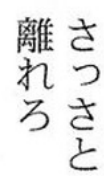 さっさと
離れろ